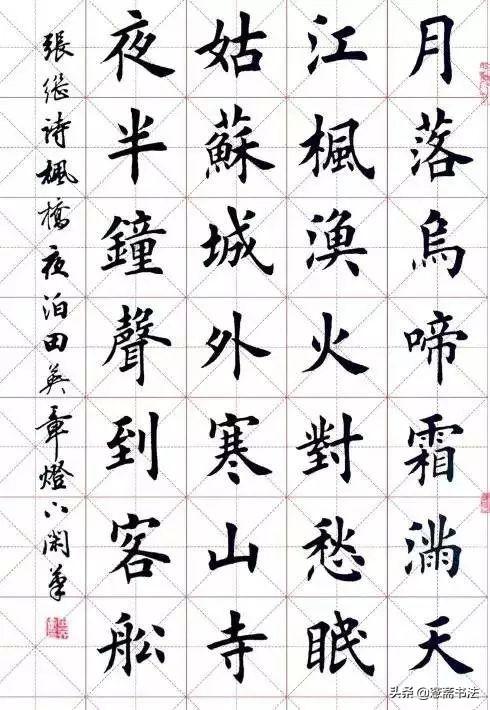 月落烏啼霜滿天
江楓漁火對愁眠
姑蘇城外寒山寺
夜半鐘聲到客船
張繼詩楓橋夜泊田英章燈下閑筆
头条@濠斋书法